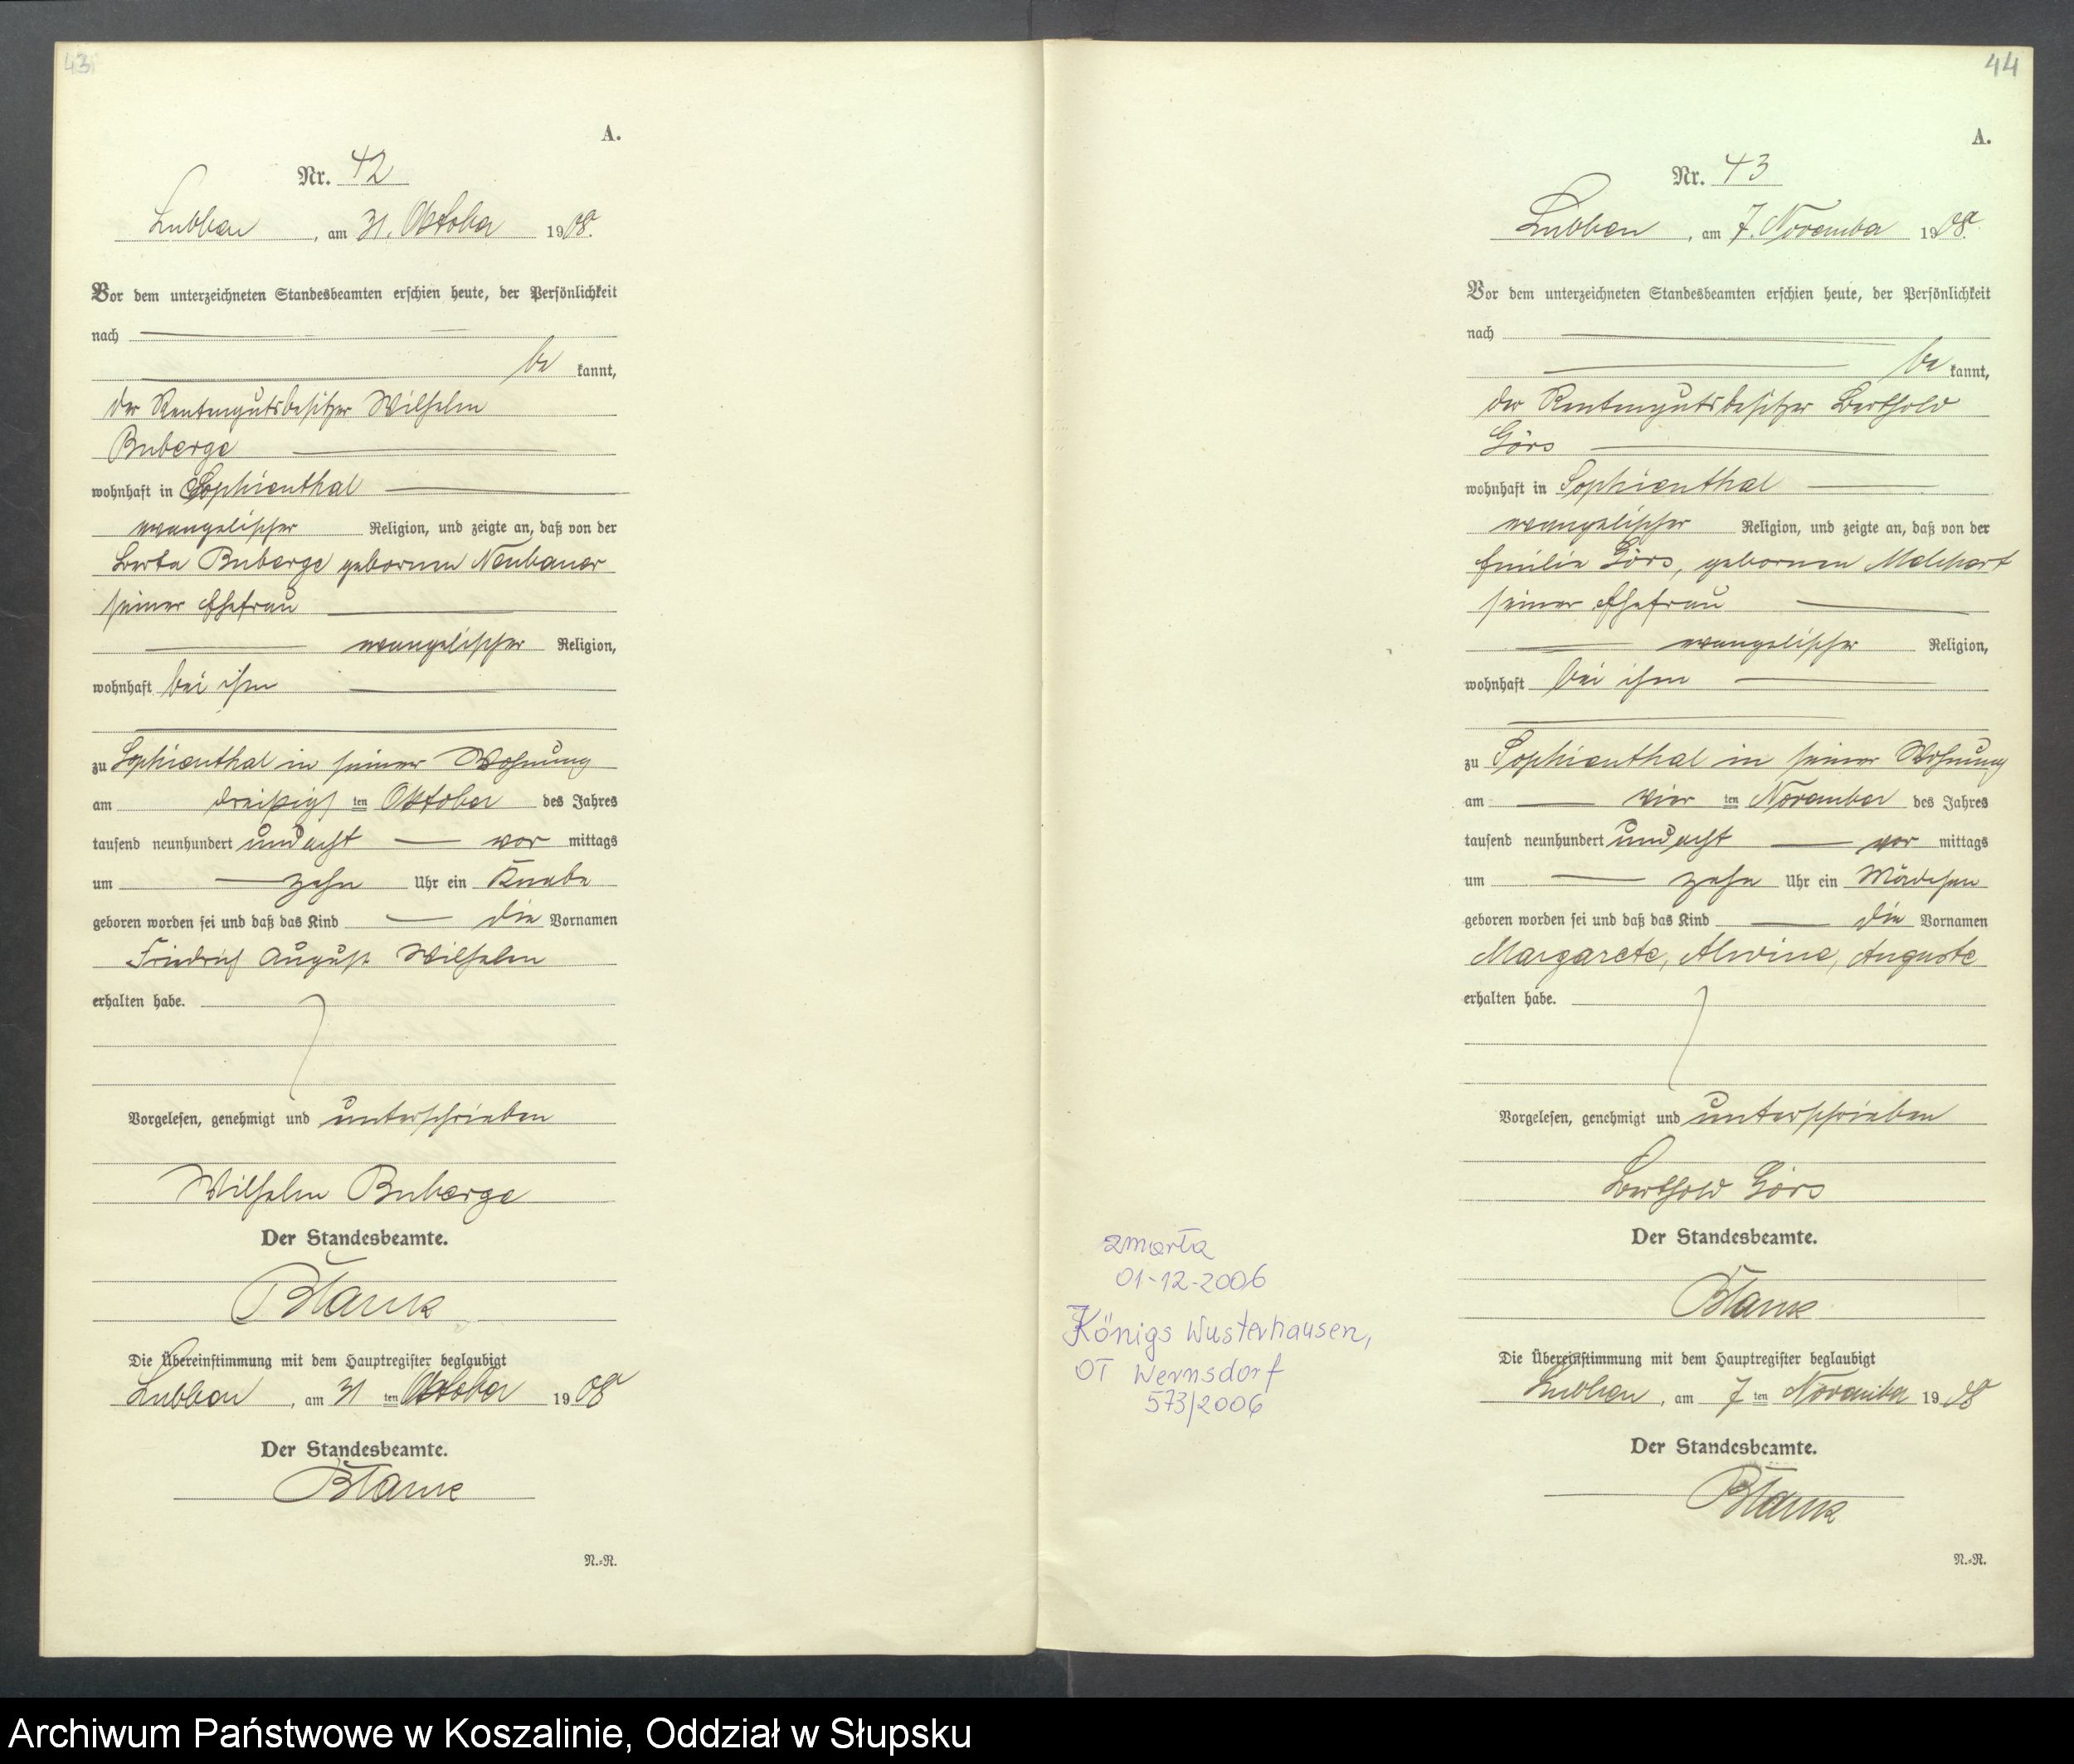 43
A.
Nr. 42
Lubben, am 31. Oktober 1908.
Vor dem unterzeichneten Standesbeamten erschien heute, der Persönlichkeit
nach
be kannt,
der Rentengutsbesitzer Wilhelm
Buberge
wohnhaft in Sophienthal
evangelischer Religion, und zeigte an, daß von der
Berta Buberge gebornen Neubauer
seiner Ehefrau
evangelischer Religion,
wohnhaft bei ihm
zu Sophienthal in seiner Wohnung
am dreißigsten Oktober des Jahres
tausend neunhundert und acht vor mittags
um zehn Uhr ein Knabe
geboren worden sei und daß das Kind die Vornamen
Friedrich August Wilhelm
erhalten habe.
Vorgelesen, genehmigt und unterschrieben
Wilhelm Buberge
Der Standesbeamte.
Blank
Die Übereinstimmung mit dem Hauptregister beglaubigt
Lubben, am 31 ten Oktober 1908
Der Standesbeamte.
Blank
N.=R.
44
A.
Nr. 43
Lubben, am 7. November 1908.
Vor dem unterzeichneten Standesbeamten erschien heute, der Persönlichkeit
nach
be kannt,
der Rentengutsbesitzer Berthold
Görs
wohnhaft in Sophienthal
evangelischer Religion, und zeigte an, daß von der
Emilie Görs, gebornen Melchert
seiner Ehefrau
evangelischer Religion,
wohnhaft bei ihm
zu Sophienthal in seiner Wohnung
am vier ten November des Jahres
tausend neunhundert und acht vor mittags
um zehn Uhr ein Mädchen
geboren worden sei und daß das Kind die Vornamen
Margarete, Alwine, Auguste
erhalten habe.
Vorgelesen, genehmigt und unterschrieben
Berthold Görs
Der Standesbeamte.
Blank
Die Übereinstimmung mit dem Hauptregister beglaubigt
Lubben, am 7 ten November 1908
Der Standesbeamte.
Blank
N.=R.
zmarła
01-12-2006
Königs Wusterhausen,
OT Wernsdorf
573/2006
Archiwum Państwowe w Koszalinie, Oddział w Słupsku